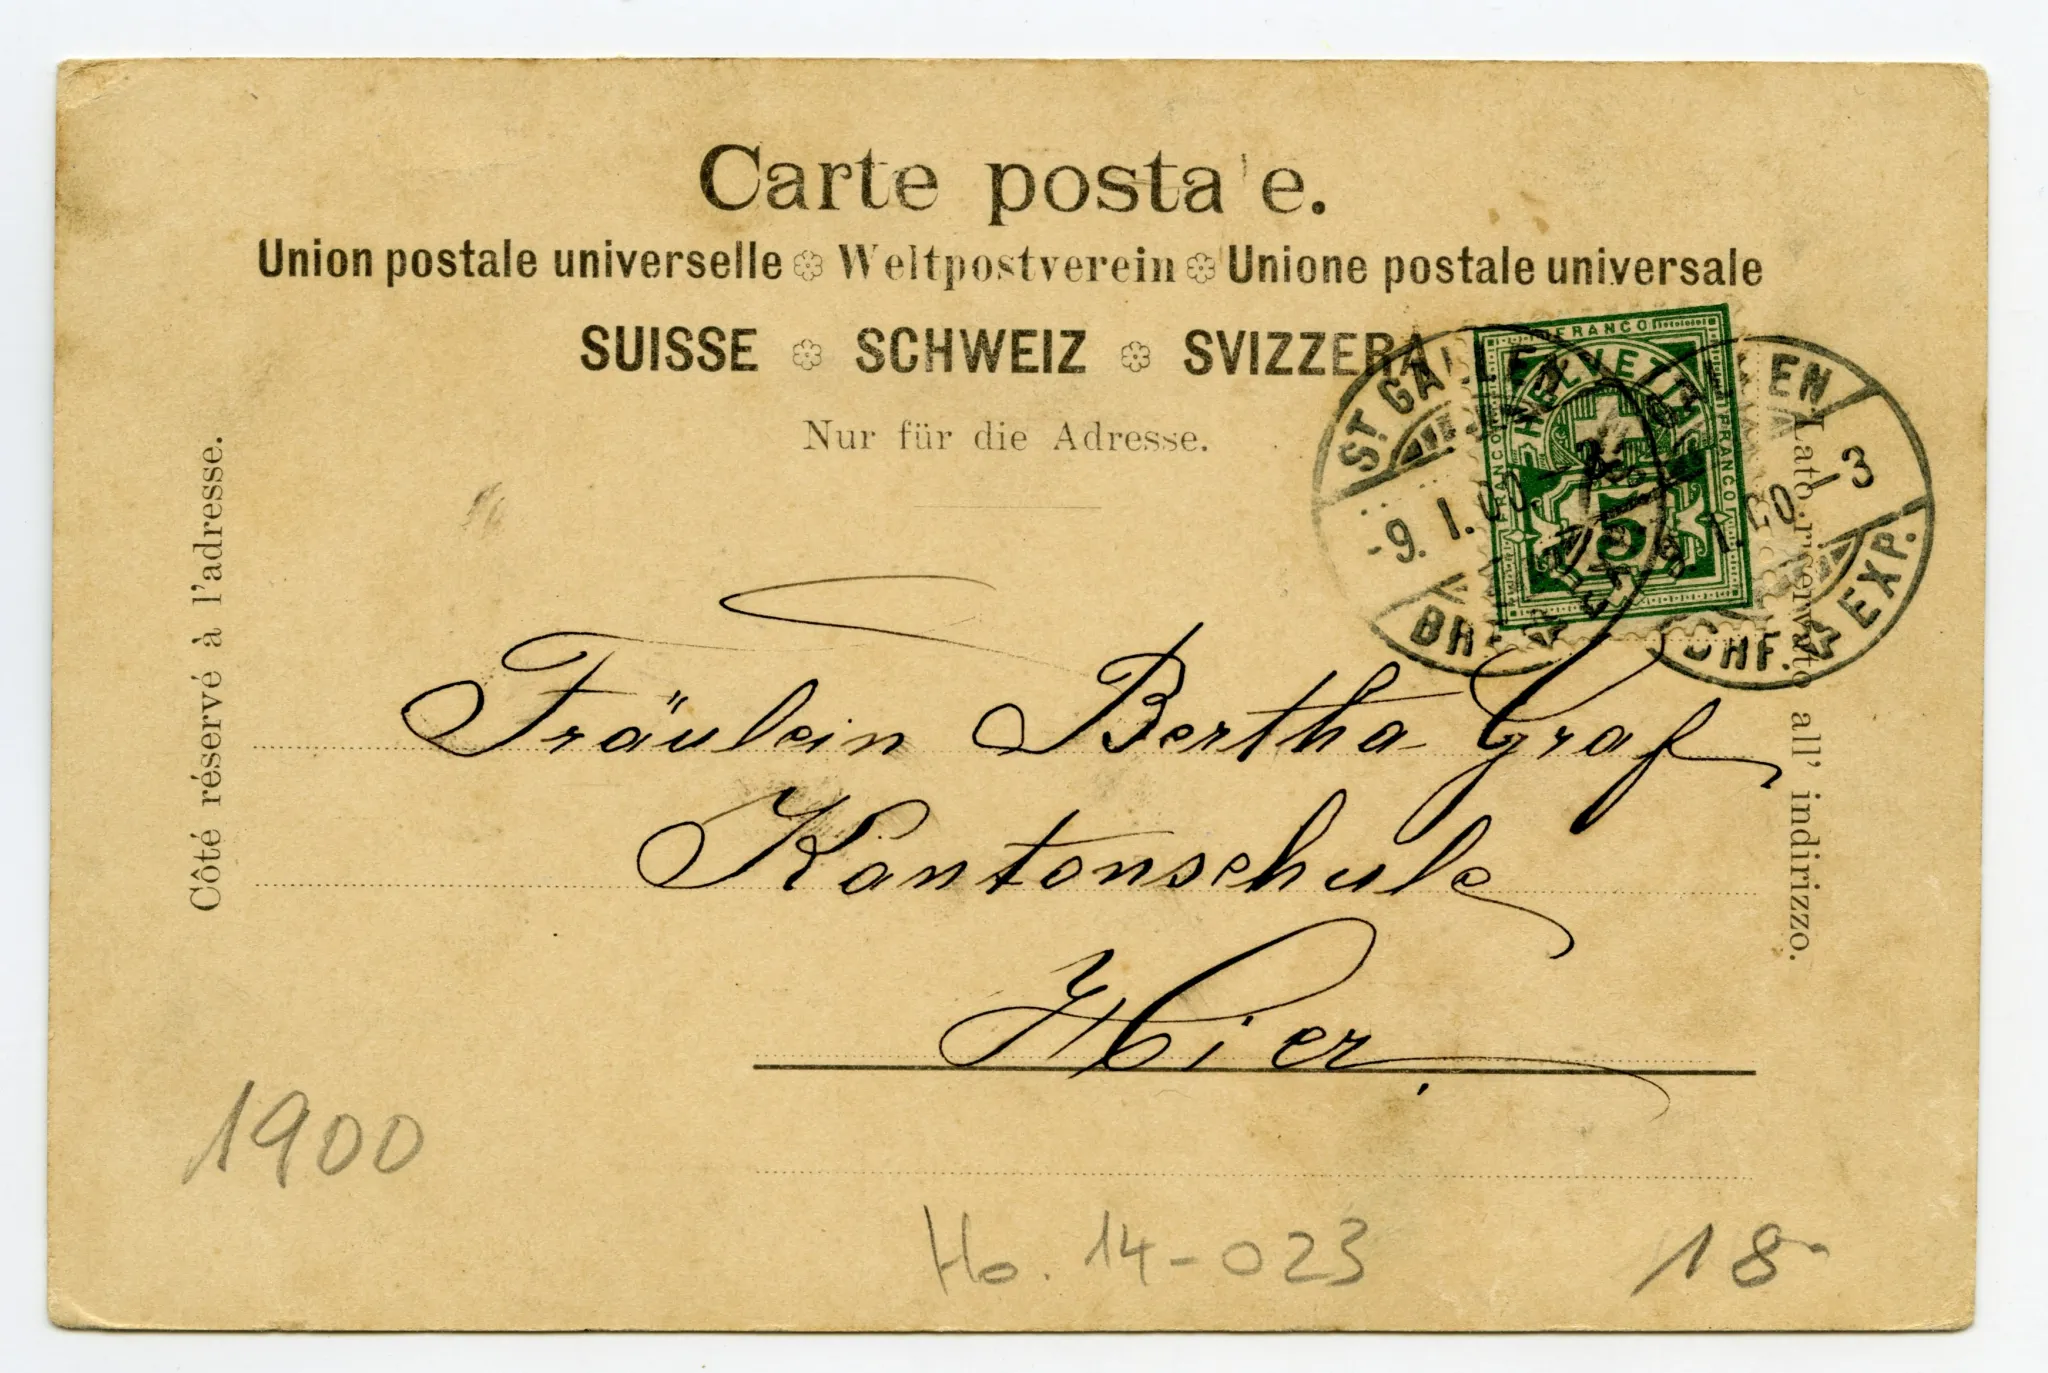 Carte posta'e.
Union postale universelle Weltpostverein Unione postale universale
SUISSE SCHWEIZ SVIZZERA
Nur für die Adresse.
Côté réservé à l'adresse.
Lato riservato all' indirizzo.
FRANCO
HELVETIA
FRANCO
FRANCO
15
ST. GALLEN
-9. I. 00.
BR
LEN
-3
BRF. EXP.
Fräulein Bertha Graf
Kantonschule
Hier.
1900
Ho. 14-023
18-